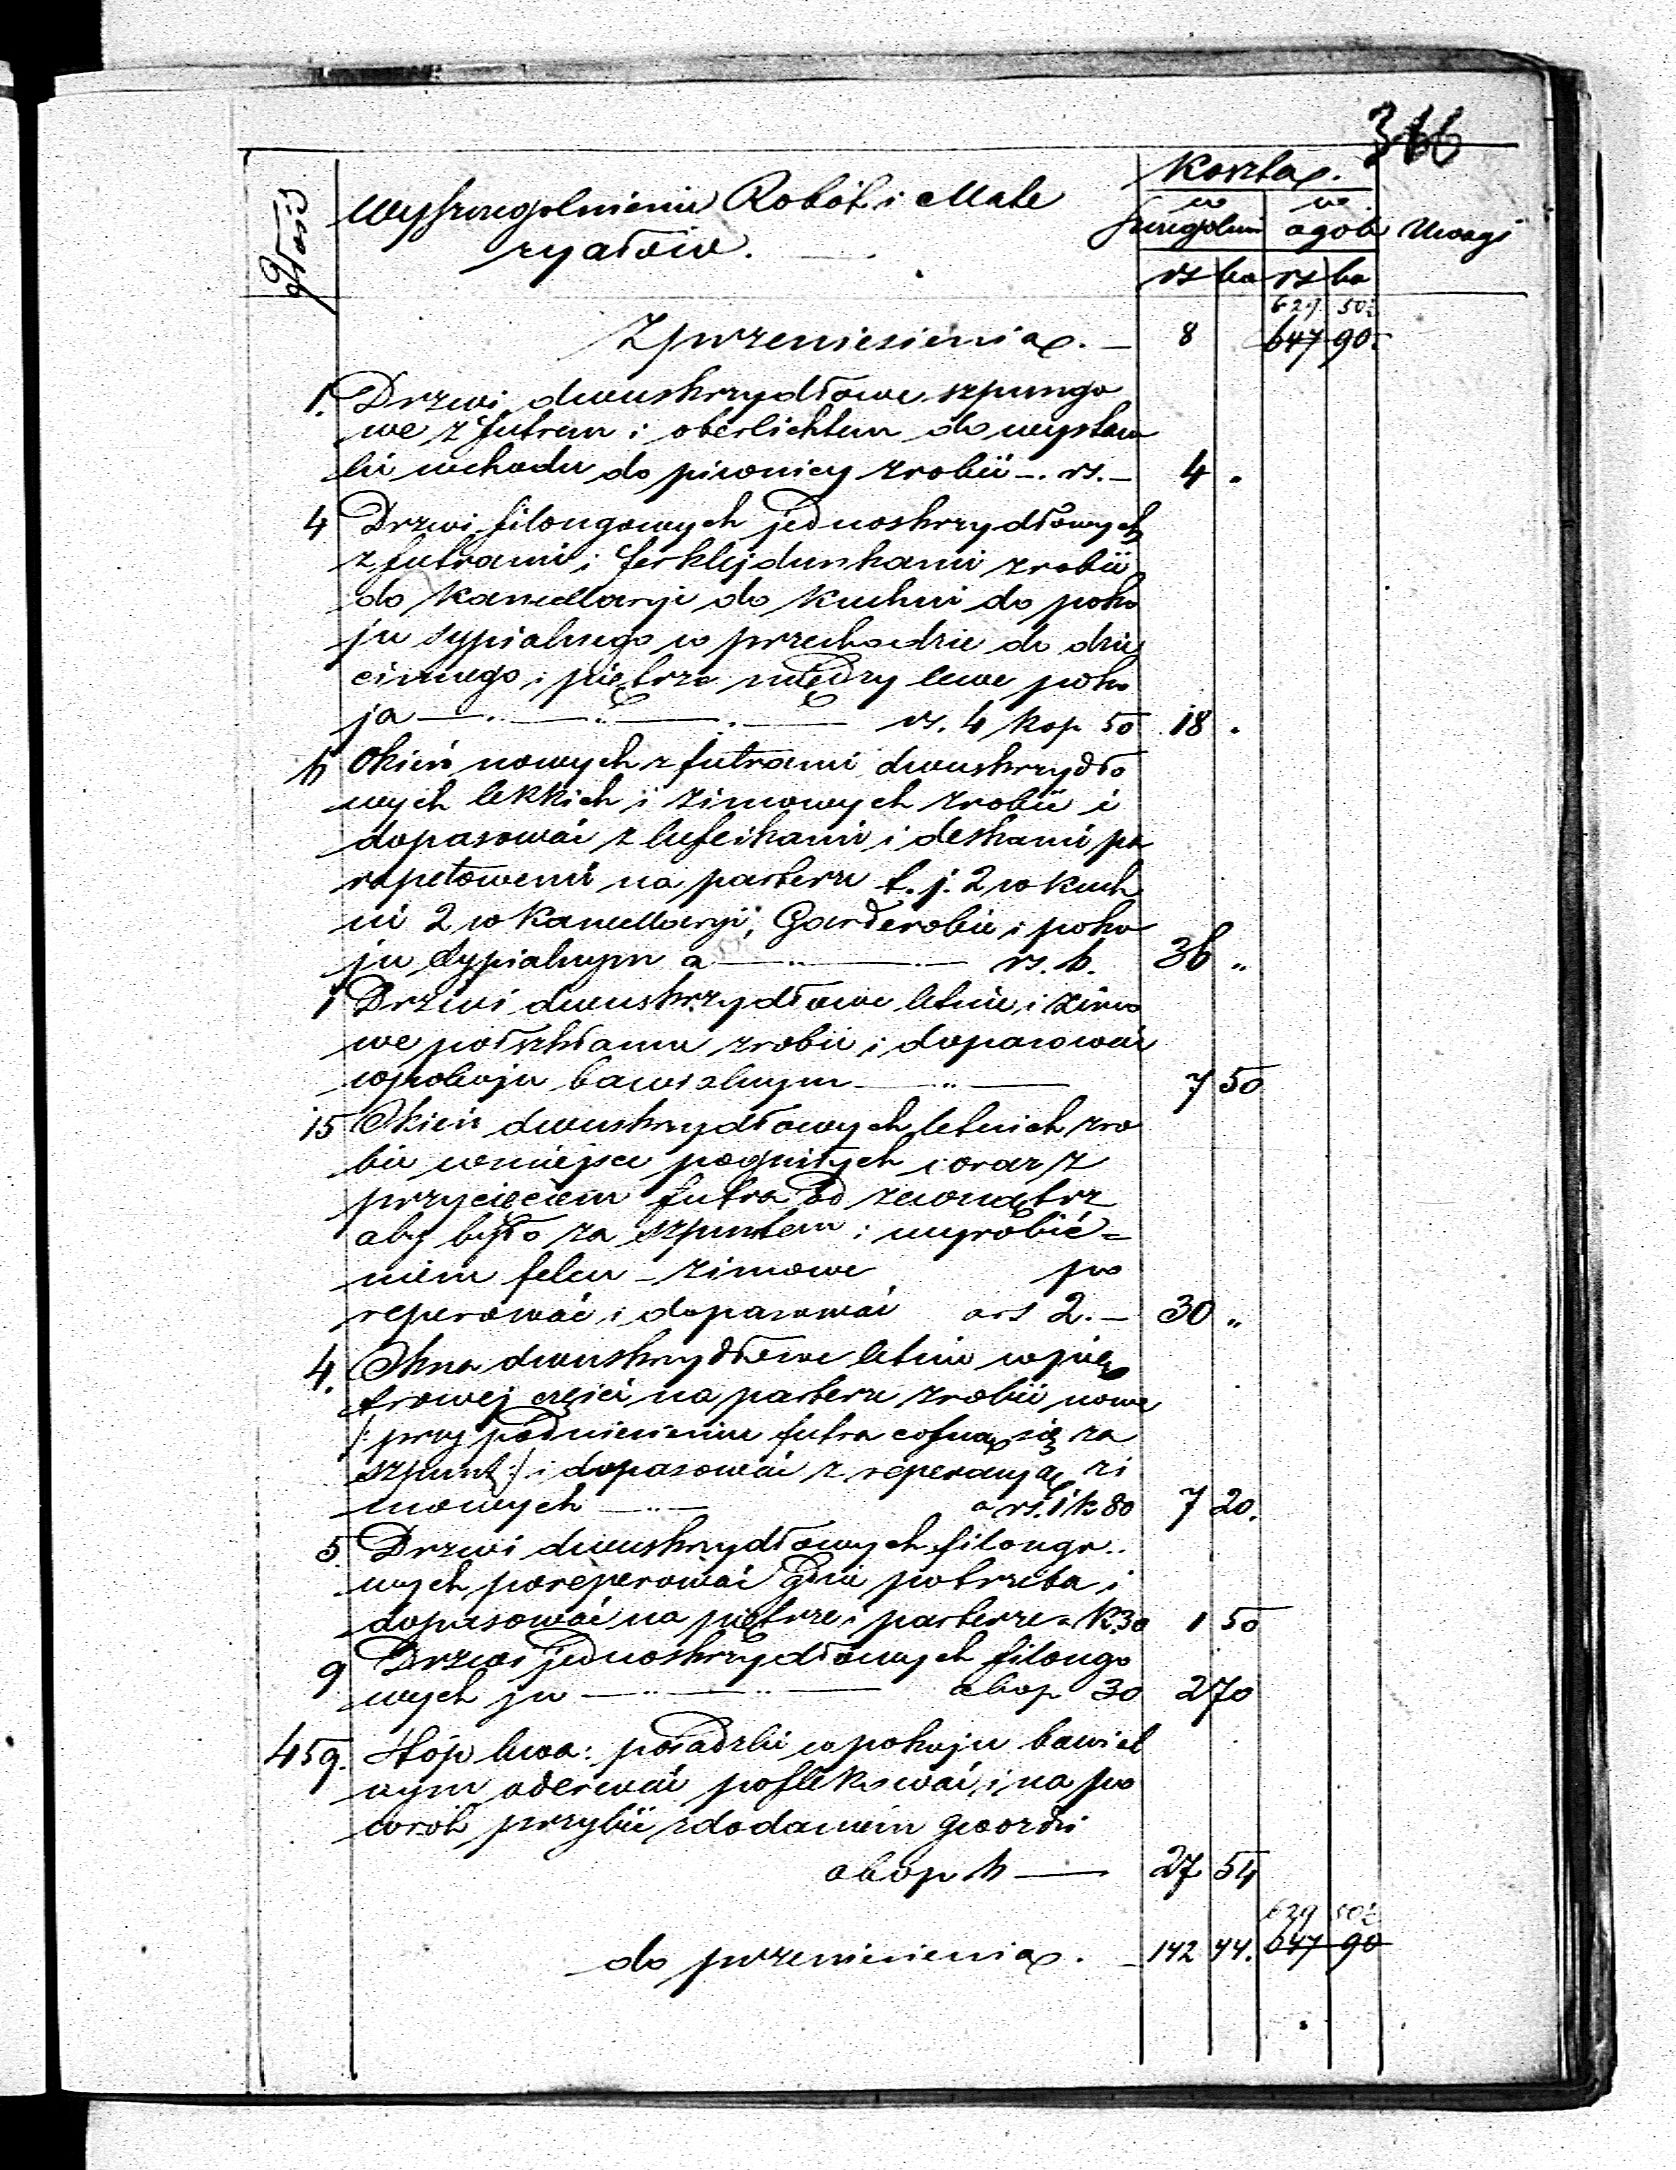 366
Ilość
Wyszczegolnienie Robót i Mate
ryałów.
Koszta.
w szczegolni
w ogole
Uwagi
rs ko rs ko
629 50½
Z przeniesienia. — 8 647 90.
1. Drzwi dwuskrzydłowe szpungo
we z futrem i oberlichtem do wystaw
ki wchodu do piwnicy zrobić —. rs. — 4 .
4 Drzwi filongowych jednoskrzydłowych
z futrami i ferklejdunkami zrobić
do Kancellaryi do Kuchni do poko
ju sypialnego w przechodzie do dzie
cinnego i piętrze między lewe poko
ja — rs. 4 kop 50 18 .
6 Okien nowych z futrami dwuskrzydło
wych lekkich i zimowych zrobić i
dopasować z lufcikami i deskami pa
rapetowemi na parterze t. j. 2 w Kuch
ni 2 w Kancellaryi, Garderobie i poko
ju sypialnym a — rs. 6. 36 „
1 Drzwi dwuskrzydłowe letnie i zimo
we pół szklanne zrobić i dopasować
w pokoju bawialnym — 7 50
15 Okien dwuskrzydłowych letnich zro
bić w miejsce pognitych i oraz z
przycięciem futra od zewnątrz
aby było za szpuntem i wyrobie=
niem felcu — zimowe po
reperować i dopasować a rs 2. — 30 „
4. Okna dwuskrzydłowe letnie w pię
trowej części na parterze zrobić nowe
/: przy podniesieniu futra cofną się za
szpunt :/ i dopasować z reperacyą zi
mowych — a rs. 1 k 80 7 20.
5. Drzwi dwuskrzydłowych filongo..
wych poreperować gdzie potrzeba i
dopasować na piętrze i parterze a K 30 1 50
9 Drzwi jednoskrzydłowych filongo
wych j w — a kop 30 2 70
459. Stóp kwa: posadzki w pokoju bawial
nym oderwać poflekować i na po
wrót przybić z dodaniem gwoździ
a kop 6 — 27 54
629 50½
do przeniesienia. — 142 44. 647 90